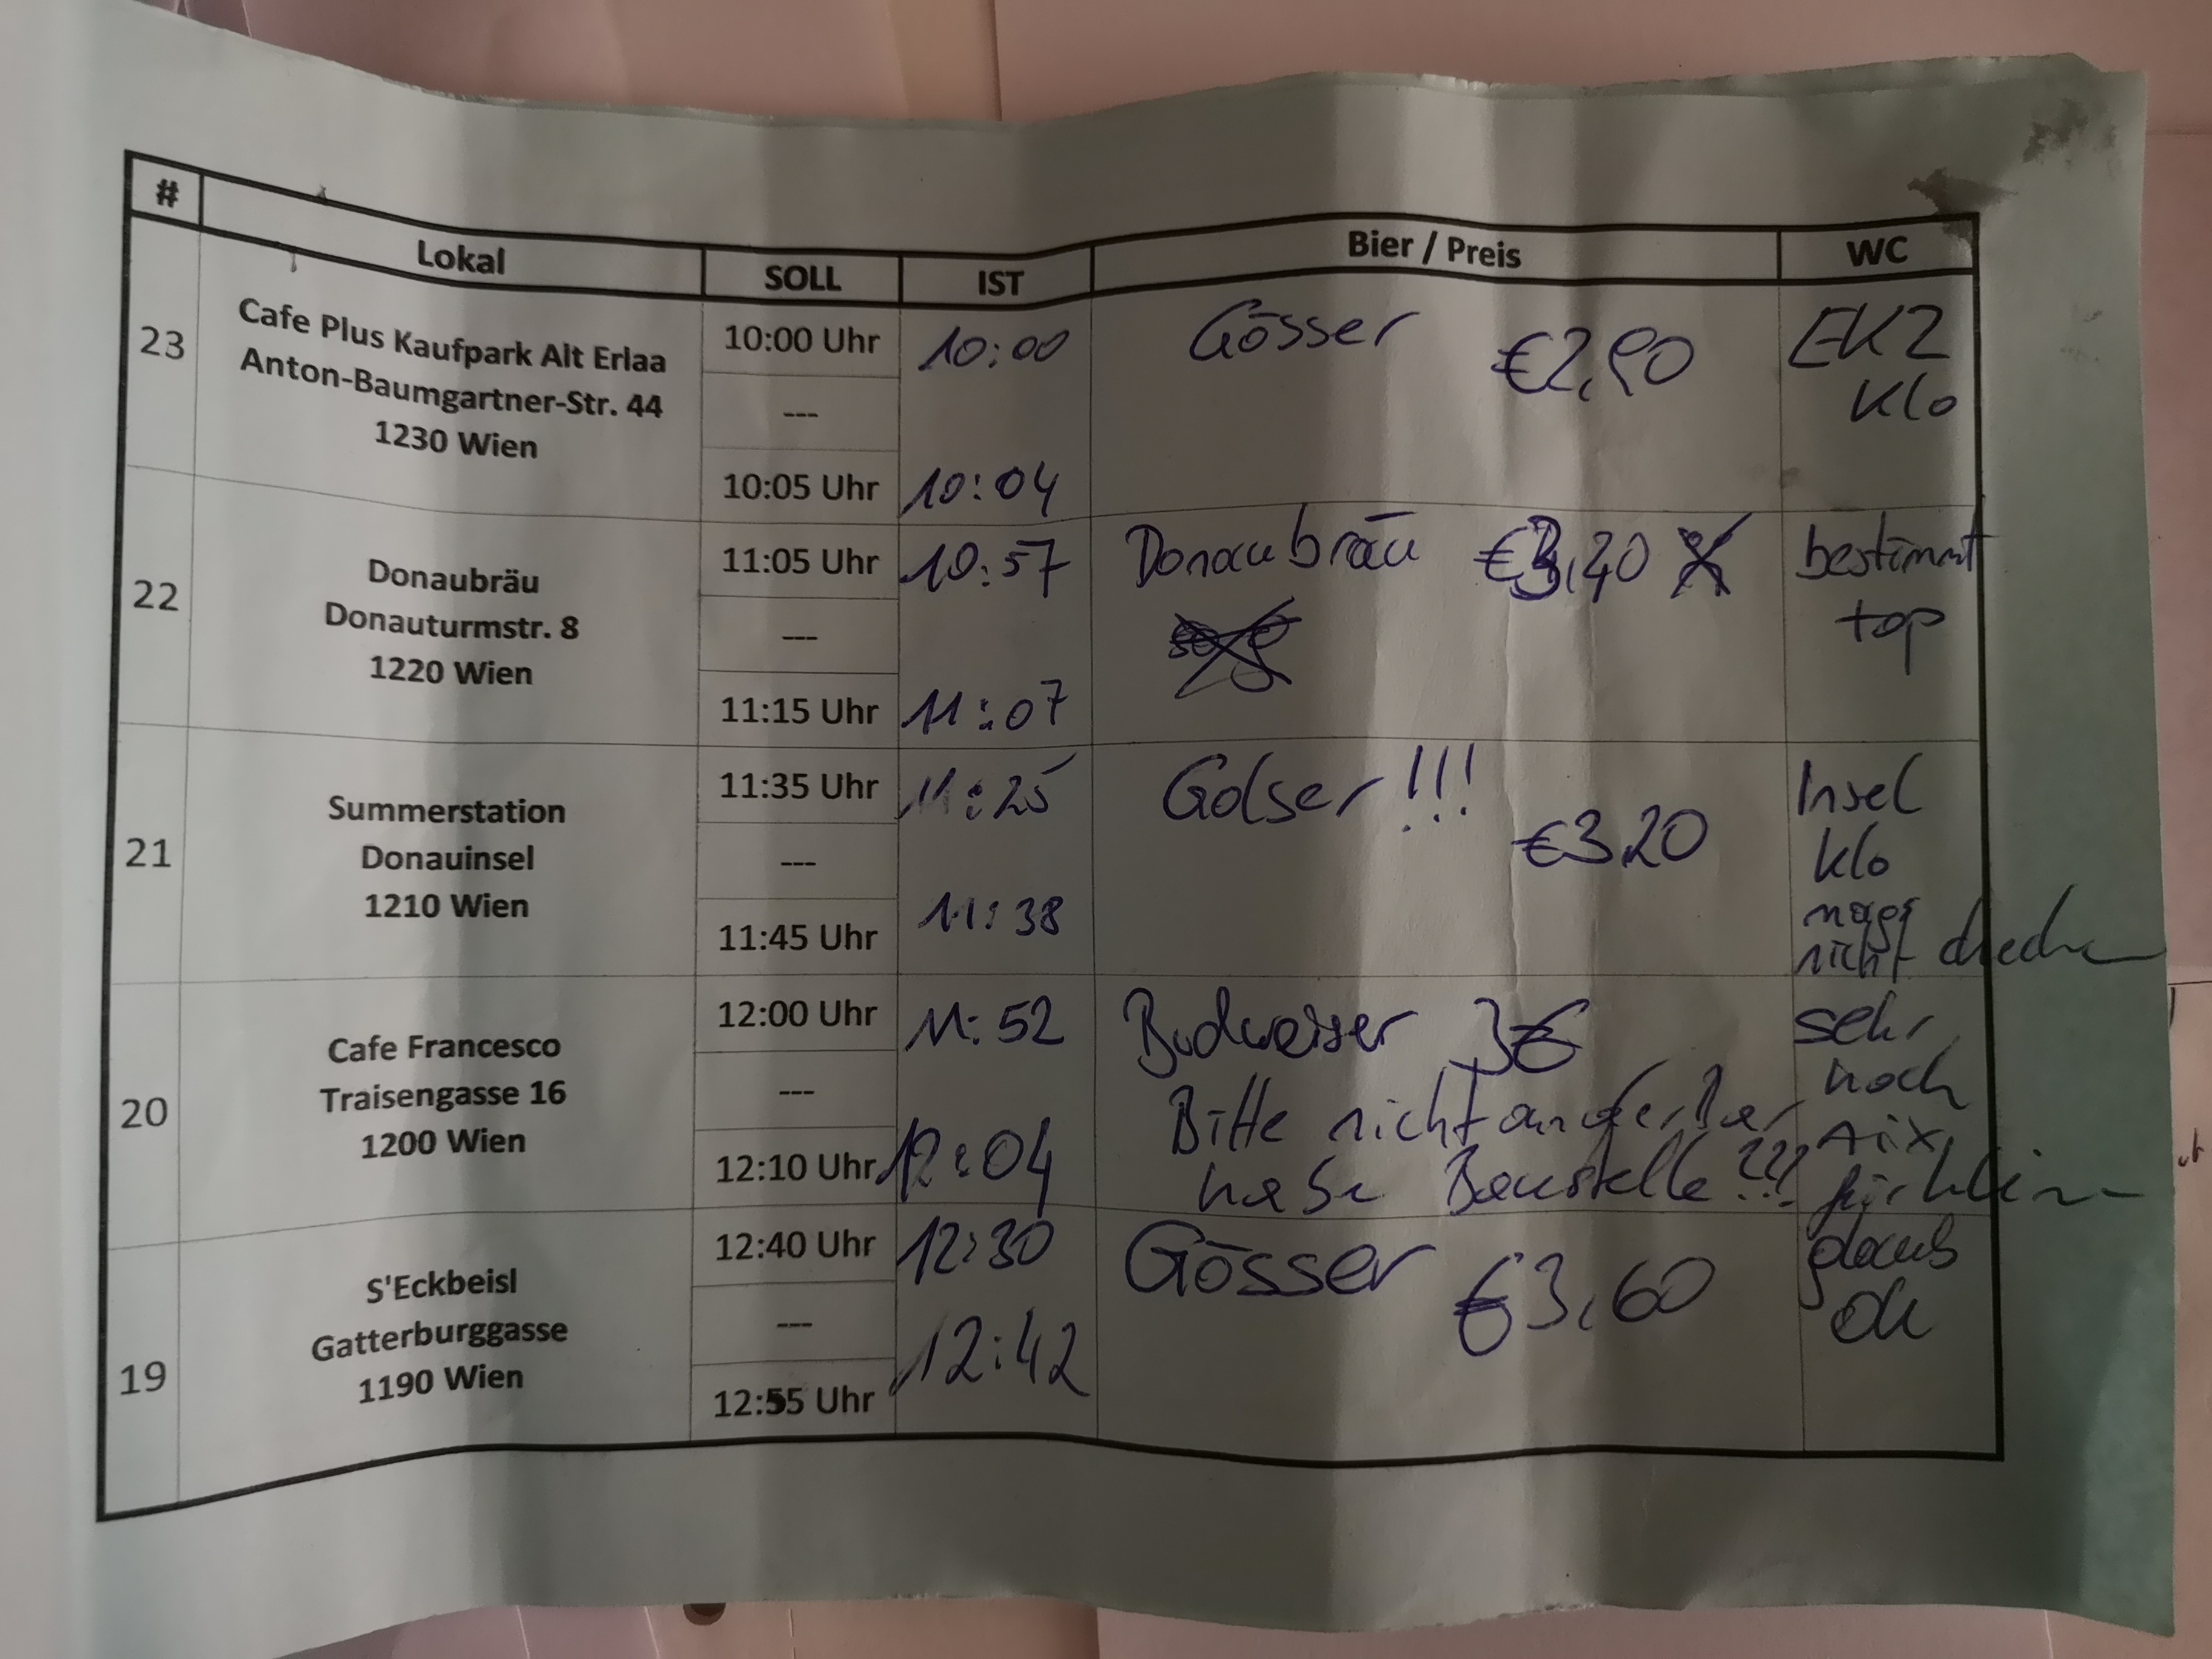 # Lokal SOLL IST Bier / Preis WC
23
Cafe Plus Kaufpark Alt Erlaa
Anton-Baumgartner-Str. 44
1230 Wien
10:00 Uhr
---
10:05 Uhr
10:00
10:04
Gösser €2,90
EKZ
Klo
22
Donaubräu
Donauturmstr. 8
1220 Wien
11:05 Uhr
---
11:15 Uhr
10:57
11:07
Donaubräu €3,40
bestimmt
top
21
Summerstation
Donauinsel
1210 Wien
11:35 Uhr
---
11:45 Uhr
11:25
11:38
Golser!!!
€3,20
Insel
Klo
mags
nicht checken
20
Cafe Francesco
Traisengasse 16
1200 Wien
12:00 Uhr
---
12:10 Uhr
11:52
12:04
Budweiser 3€
Bitte nicht an der Bar
habe Baustelle???
sehr
noch
nix
19
S'Eckbeisl
Gatterburggasse
1190 Wien
12:40 Uhr
---
12:55 Uhr
12:30
12:42
Gösser €3,60
glaub
ok